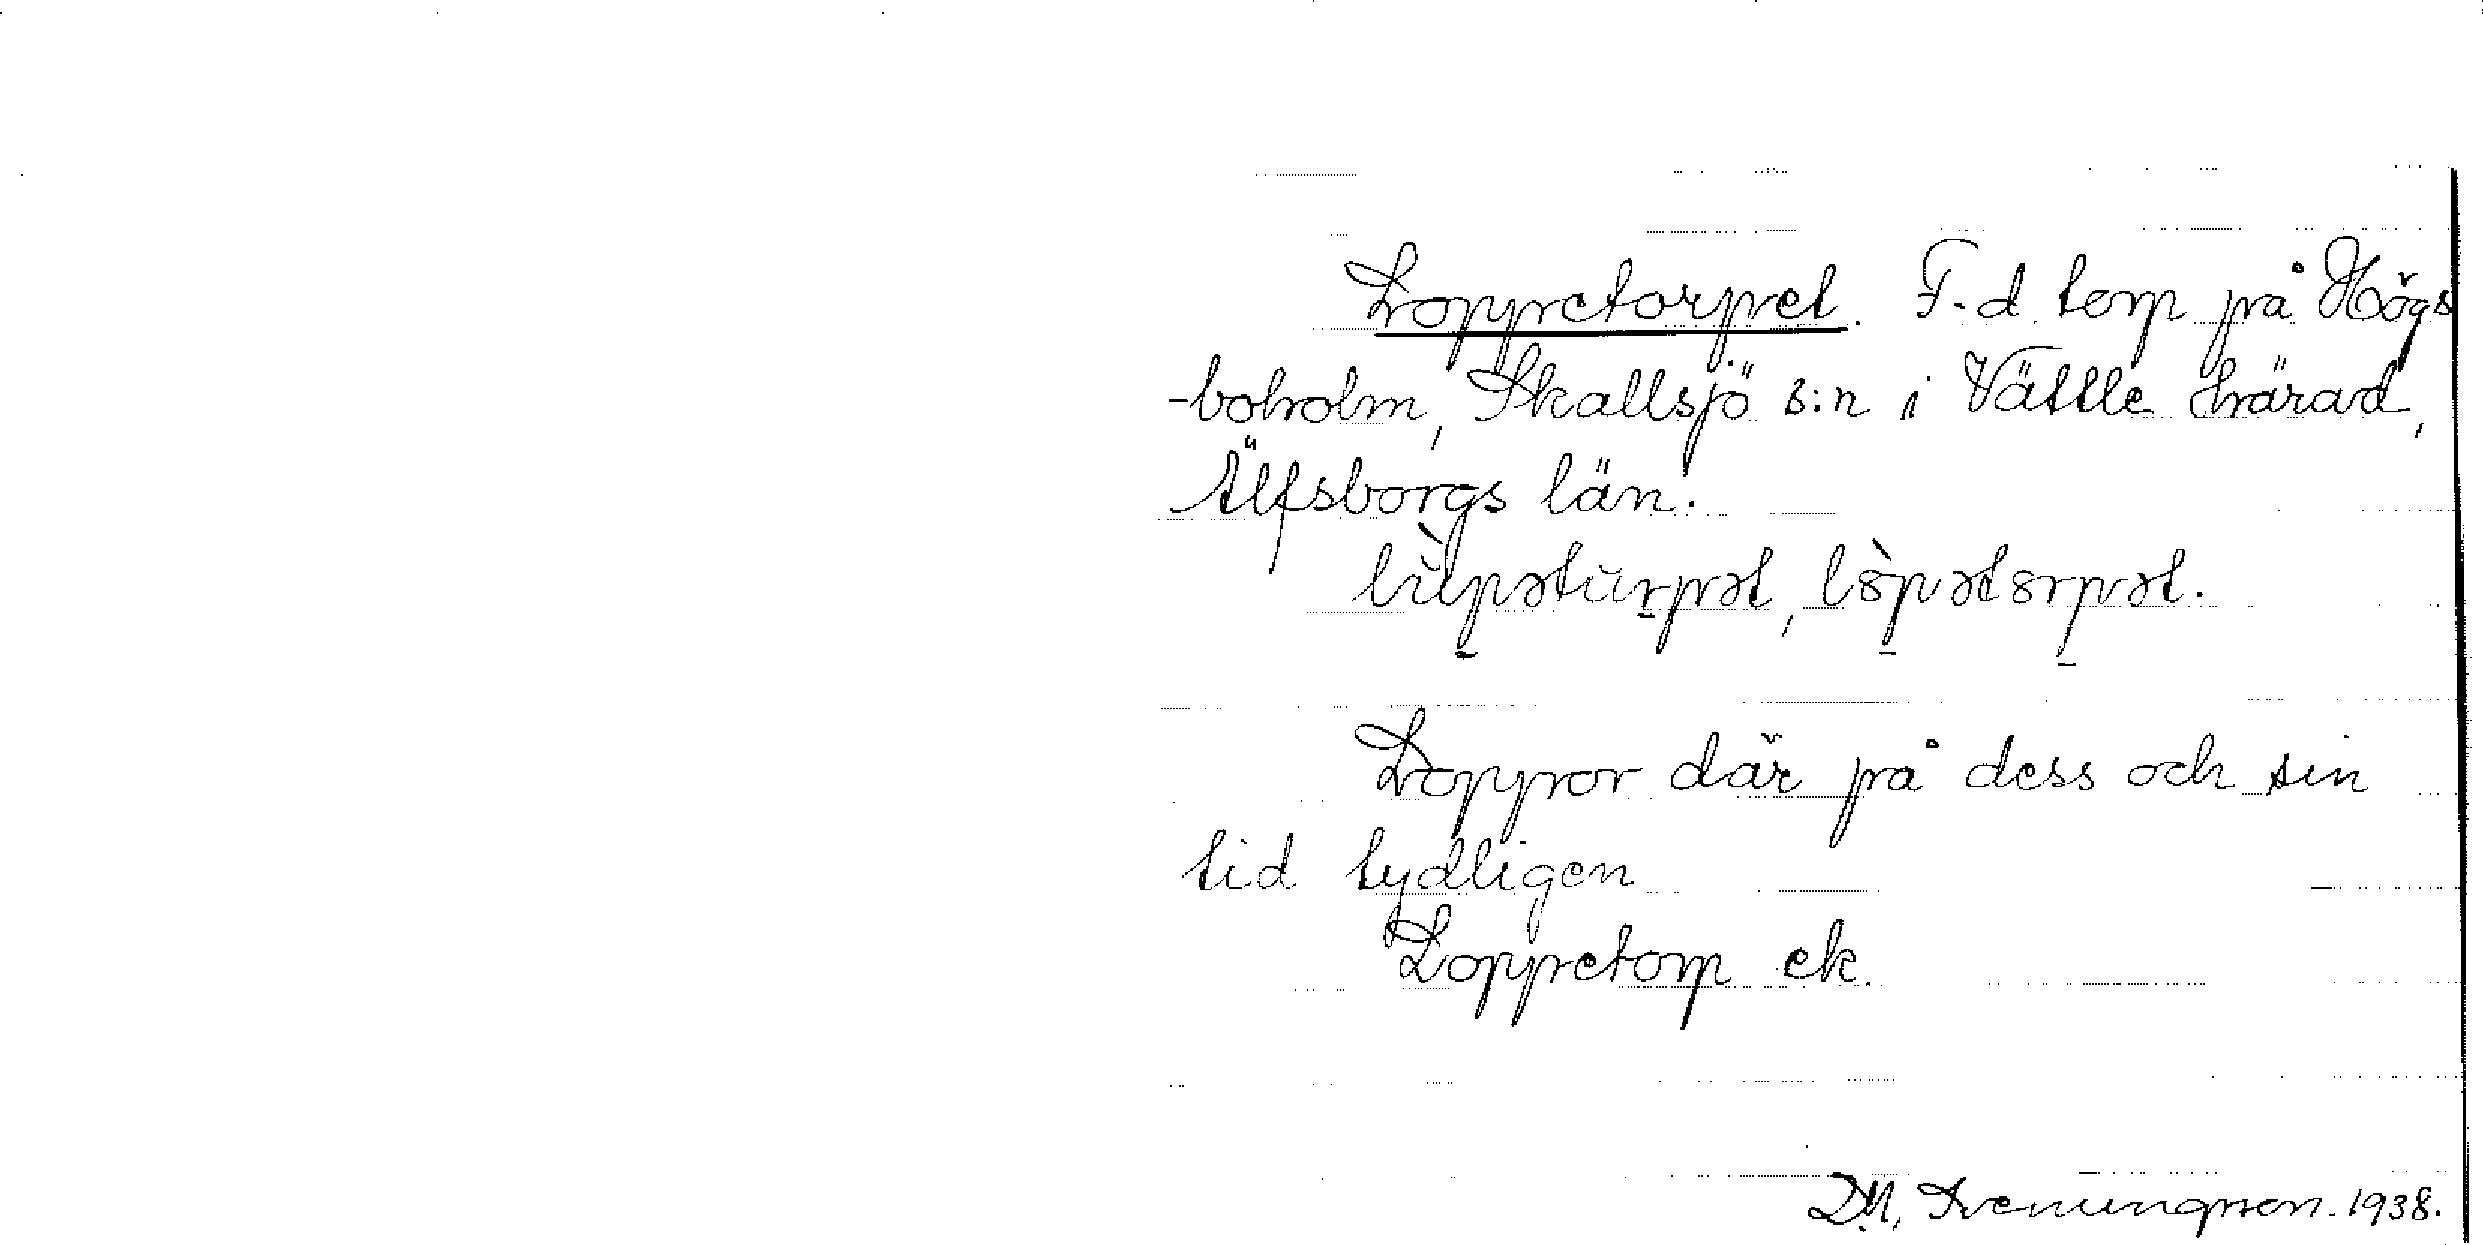 Loppetorpet. F.d. torp på Högs
-boholm, Skallsjö s:n i Vättle härad,
Älfsborgs län.
lùpəturpət, lòpətorpət.
Loppor där på dess och sin
tid tydligen
Loppetorp ek.
D.N. Svenungsson. 1938.